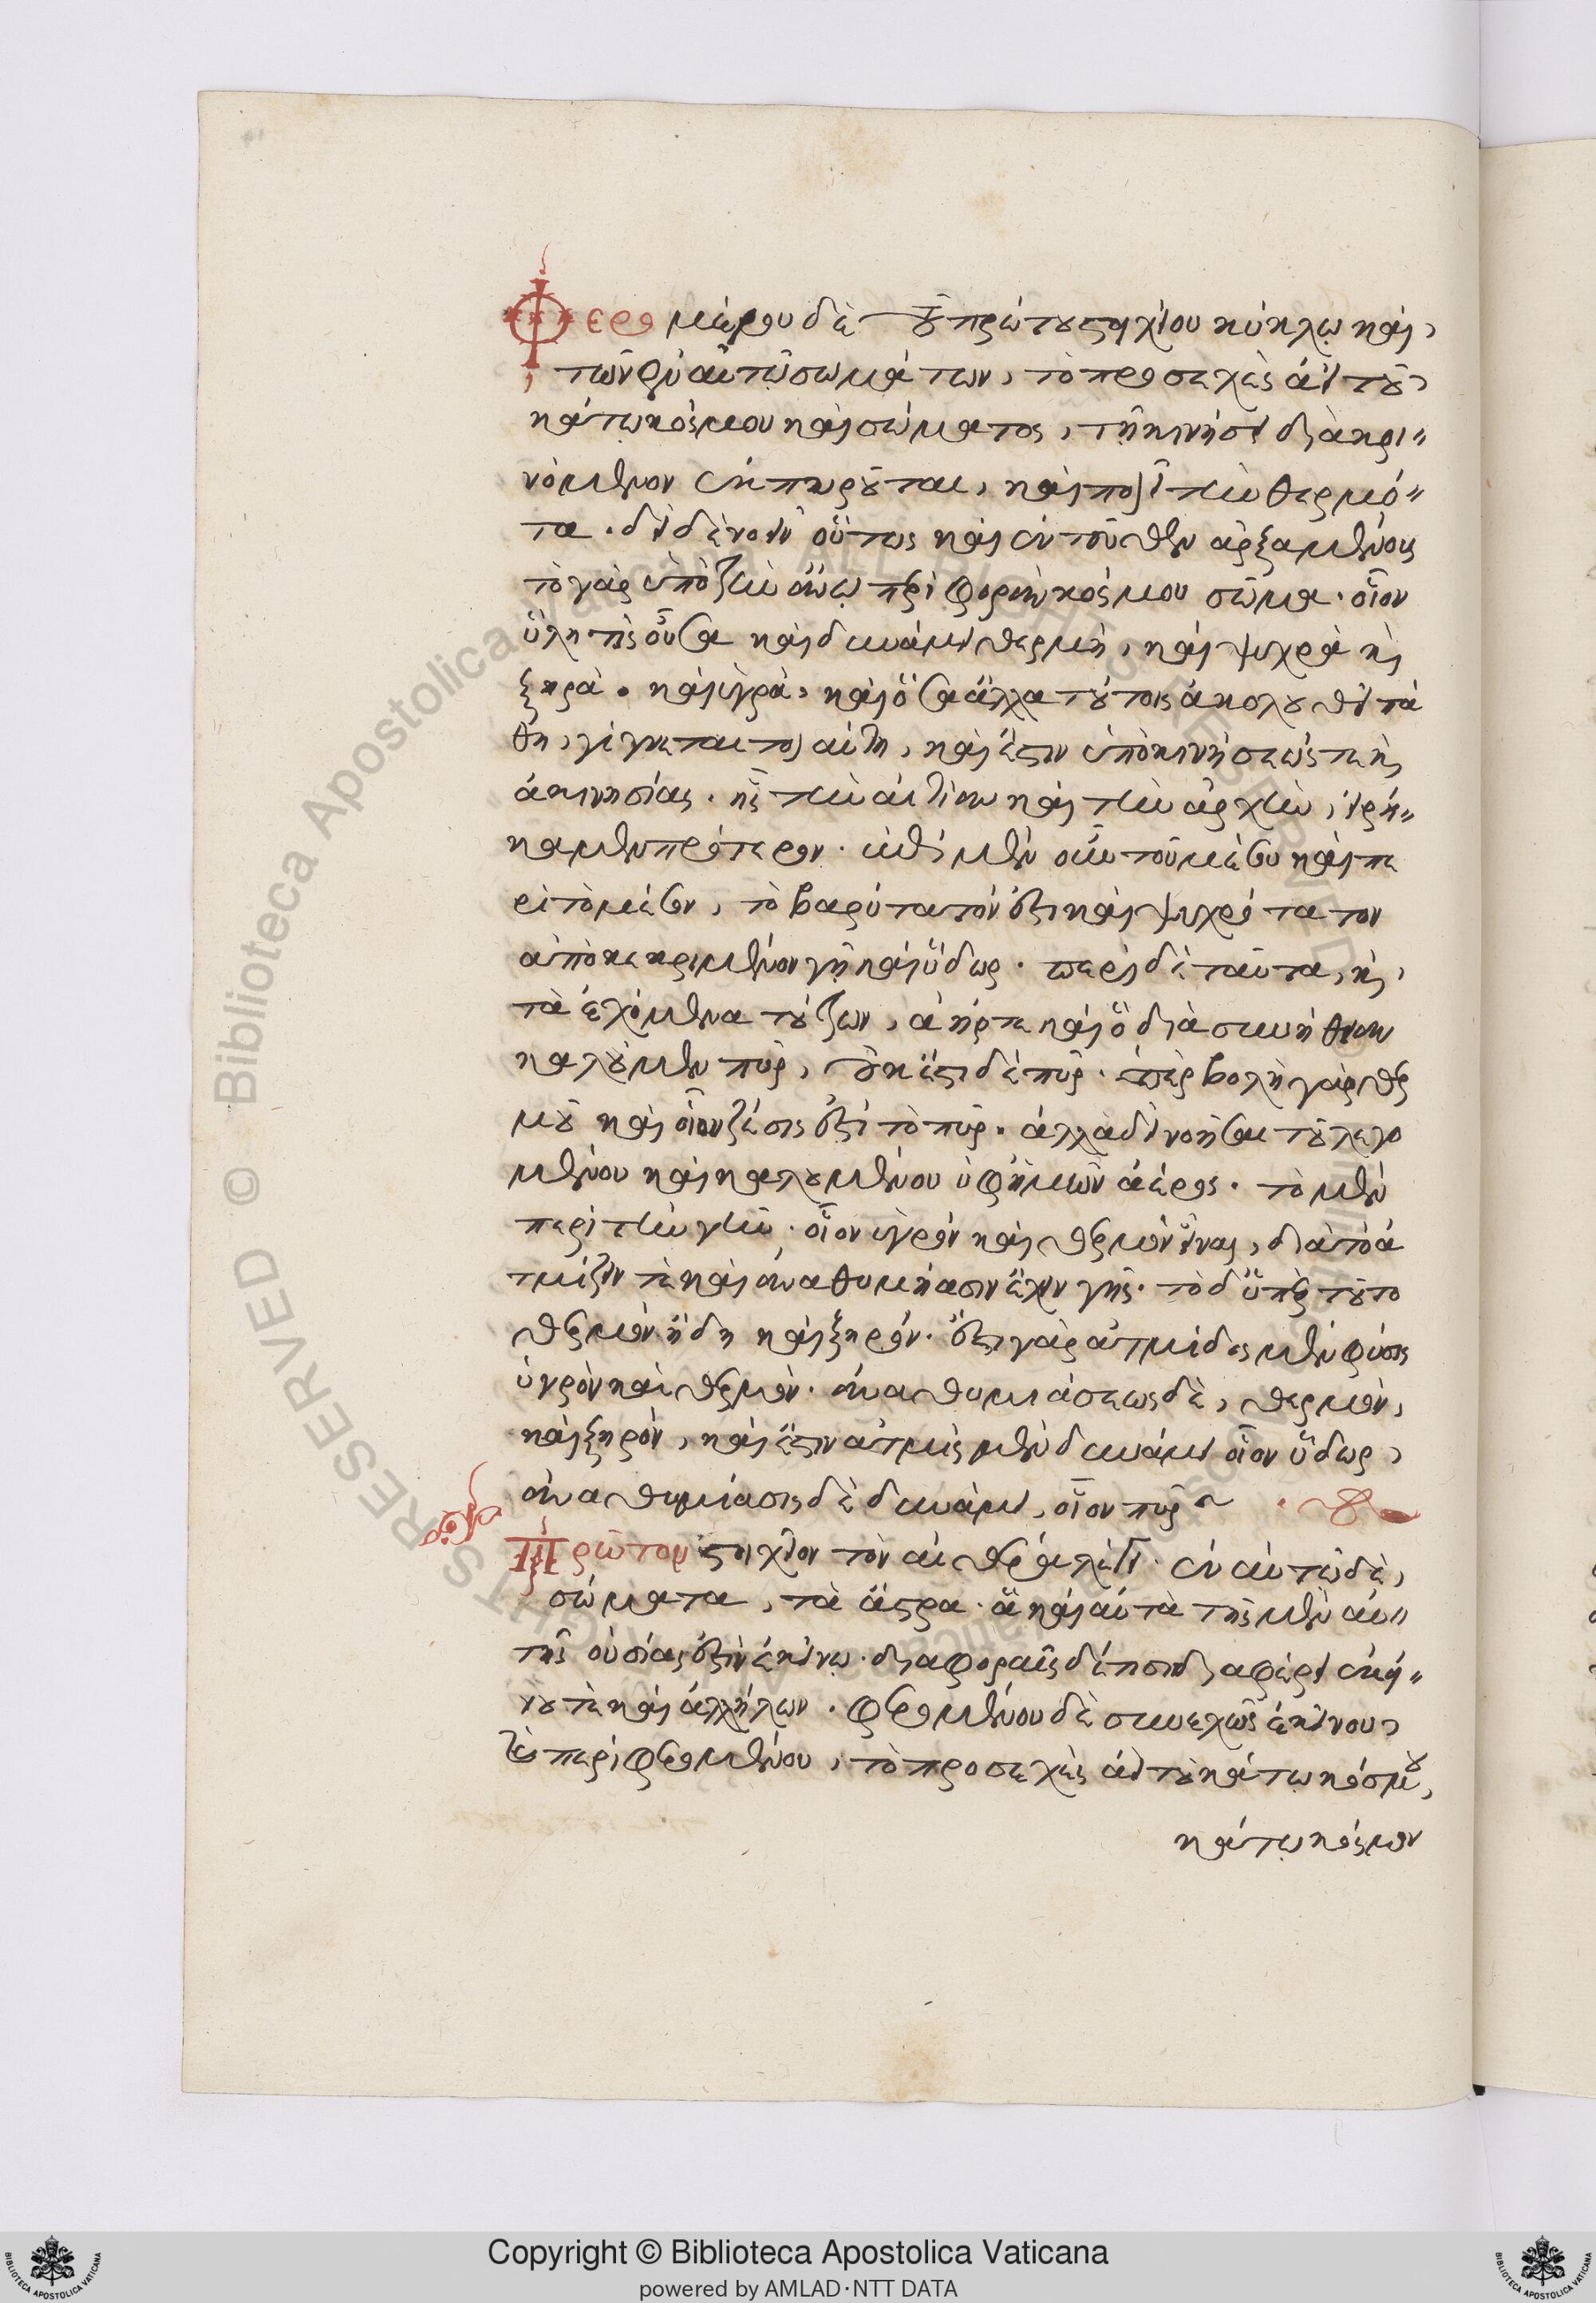 Φερομένου δὲ τοῦ πρώτου στοιχείου κύκλω καὶ,
τῶν ἐν αὐτῷ σωμάτων, τὸ προσεχὲς ἀεὶ τοῦ,
κάτω κόσμου καὶ σώματος, τῇ κινήσει διακρι"
νόμενον ἐκπυροῦται, καὶ ποιεῖ τὴν θερμό"
τα. δεῖ δὲ νοεῖν οὕτως καὶ ἐντεῦθεν ἀρξαμένους
τὸ γὰρ ὑπὸ τὴν ἄνω περιφορὰν κόσμου σῶμα. οἷον
ὕλη τὶς οὖσα καὶ δυνάμει θερμὴ, καὶ ψυχρὰ καὶ
ξηρὰ. καὶ ὑγρὰ, καὶ ὅσα ἄλλα τούτοις ἀκολουθεῖ πά
θη, γίγνεται τοιαύτη, καὶ ἔστιν ὑπὸ κινήσεώς τε καὶ
ἀκινησίας. ἧς τὴν αἰτίαν καὶ τὴν ἀρχὴν, εἰρή"
καμεν πρότερον. ἐπὶ μὲν οὖν τοῦ μέσου καὶ πε
ρὶ τὸ μέσον, τὸ βαρύτατόν ἐστι καὶ ψυχρότατον
ἀποκεκριμένον γῆ καὶ ὕδωρ. περὶ δὲ ταῦτα, καὶ,
τὰ ἐχόμενα τούτων, ἀήρ τε καὶ ὃ διὰ συνήθειαν
καλοῦμεν πῦρ, οὐκ ἔστι δὲ πῦρ. ὑπερβολὴ γὰρ θερ
μοῦ καὶ οἷον ζέσις ἐστὶ τὸ πῦρ. ἀλλὰ δεῖ νοῆσαι τοῦ λεγο
μένου καὶ καλουμένου ὑφ' ἡμῶν ἀέρος. τὸ μὲν
περὶ τὴν γῆν. οἷον ὑγρὸν καὶ θερμὸν εἶναι, διὰ τὸ ἀ
τμίζειν τε καὶ ἀναθυμίασιν ἔχειν γῆς. τὸ δ' ὑπὲρ τοῦτο
θερμὸν ἤδη καὶ ξηρόν. ἔστι γὰρ ἀτμίδος μὲν φύσις
ὑγρὸν καὶ θερμὸν. ἀναθυμιάσεως δὲ, θερμὸν,
καὶ ξηρὸν, καὶ ἔστιν ἀτμὶς μὲν δυνάμει οἷον ὕδωρ,
ἀναθυμίασις δὲ δυνάμει, οἷον πῦρ
Πρῶτον στοιχεῖον τὸν αἰθέρα λέγει. ἐν αὐτῷ δὲ,
σώματα, τὰ ἄστρα. ἃ καὶ αὐτὰ τῆς μὲν αὐ"
τῆς οὐσίας ἐστὶν ἐκείνῳ. διαφοραῖς δέ τισι διαφέρει ἐκεί"
νου τὲ καὶ ἀλλήλων. φερομένου δὲ συνεχῶς ἐκείνου,
καὶ περιφερομένου, τὸ προσεχὲς ἀεὶ τοῦ κάτω κόσμου,
κάτω κόσμον
Copyright © Biblioteca Apostolica Vaticana
powered by AMLAD·NTT DATA